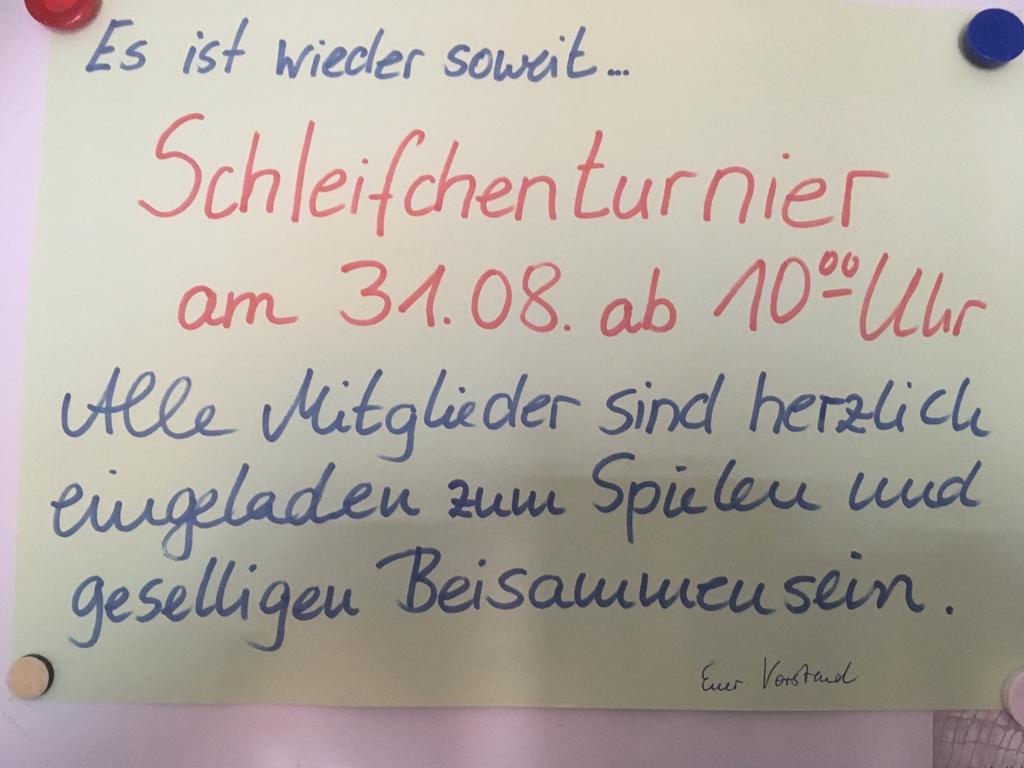 Es ist wieder soweit...
Schleifchenturnier
am 31.08. ab 10⁰⁰ Uhr
Alle Mitglieder sind herzlich
eingeladen zum Spielen und
geselligen Beisammensein.
Euer Vorstand